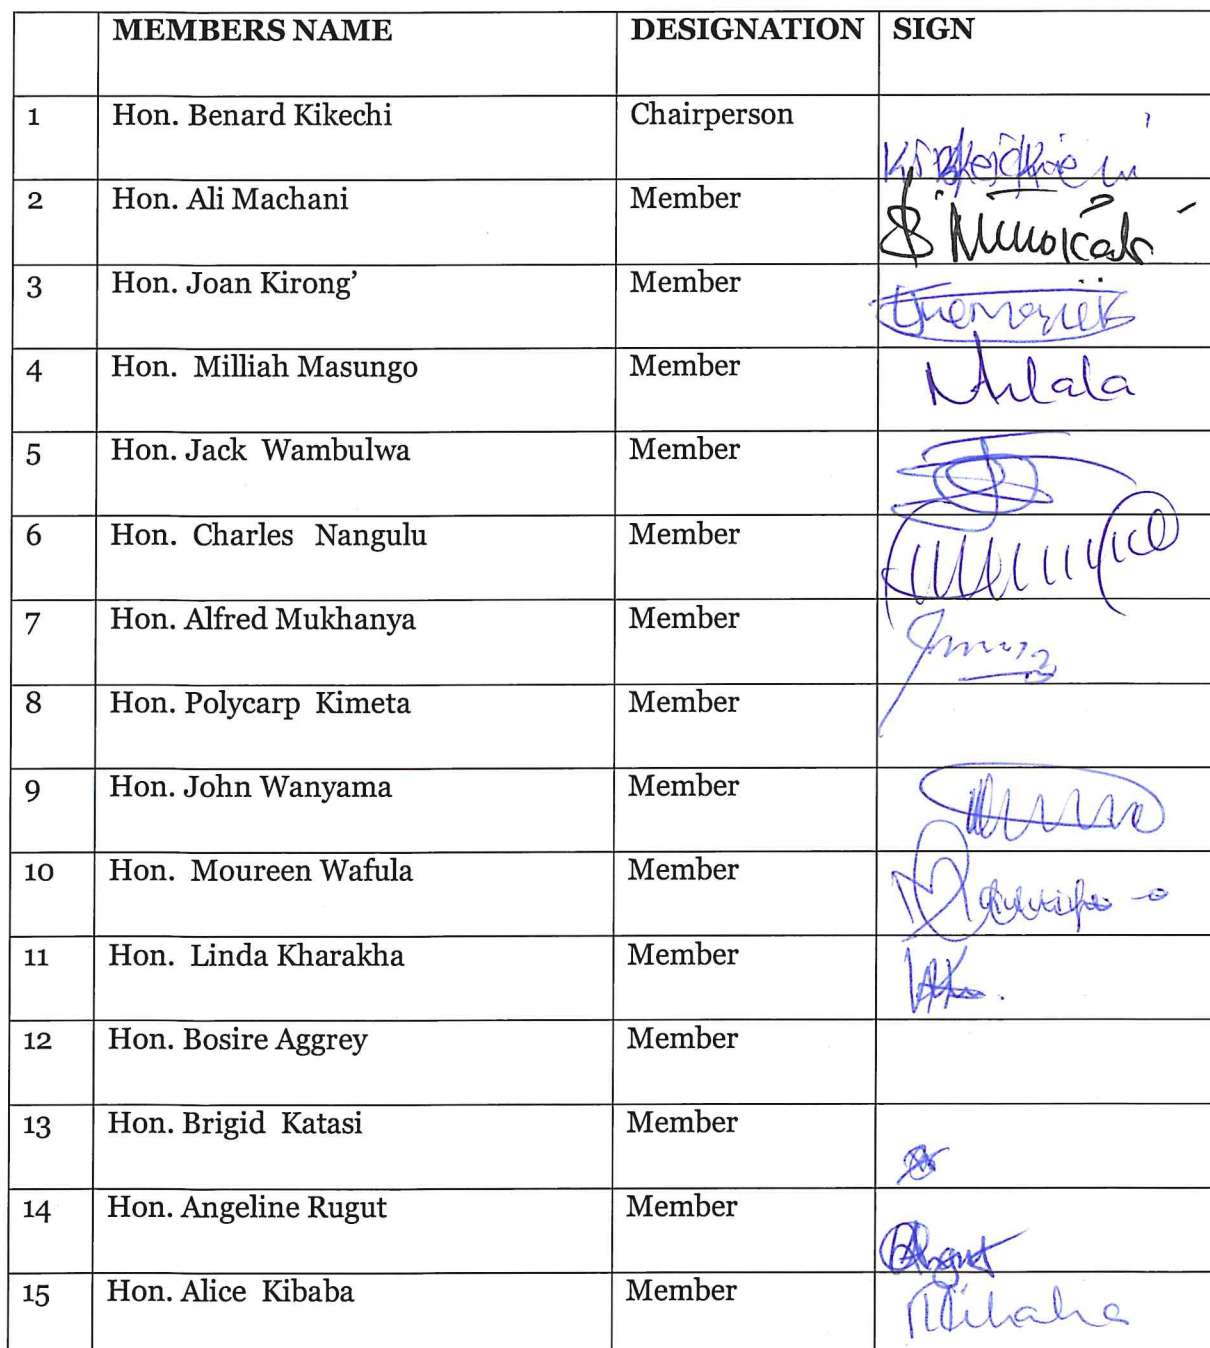 MEMBERS NAME DESIGNATION SIGN
1 Hon. Benard Kikechi Chairperson
2 Hon. Ali Machani Member
3 Hon. Joan Kirong’ Member
4 Hon. Milliah Masungo Member
5 Hon. Jack Wambulwa Member
6 Hon. Charles Nangulu Member
7 Hon. Alfred Mukhanya Member
8 Hon. Polycarp Kimeta Member
9 Hon. John Wanyama Member
10 Hon. Moureen Wafula Member
11 Hon. Linda Kharakha Member
12 Hon. Bosire Aggrey Member
13 Hon. Brigid Katasi Member
14 Hon. Angeline Rugut Member
15 Hon. Alice Kibaba Member